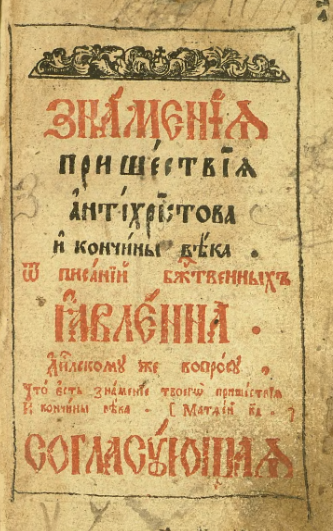 ЗНА́МЕНІѦ
пришéствїѧ
а҆нтíхрїстова
и҆ кончи́ны вѣ́ка .
ѿ писáнїй бж҃твенныхъ
Ꙗ҆ВЛЕ́ННА .
кому же вопрóсу ,
Что́ є҆сть знáменїе твоегѡ̀ пришéствїѧ
И кончи́ны вѣка . [ Матѳéй кд .
СОГЛАСꙊ́ЮЩАѦ